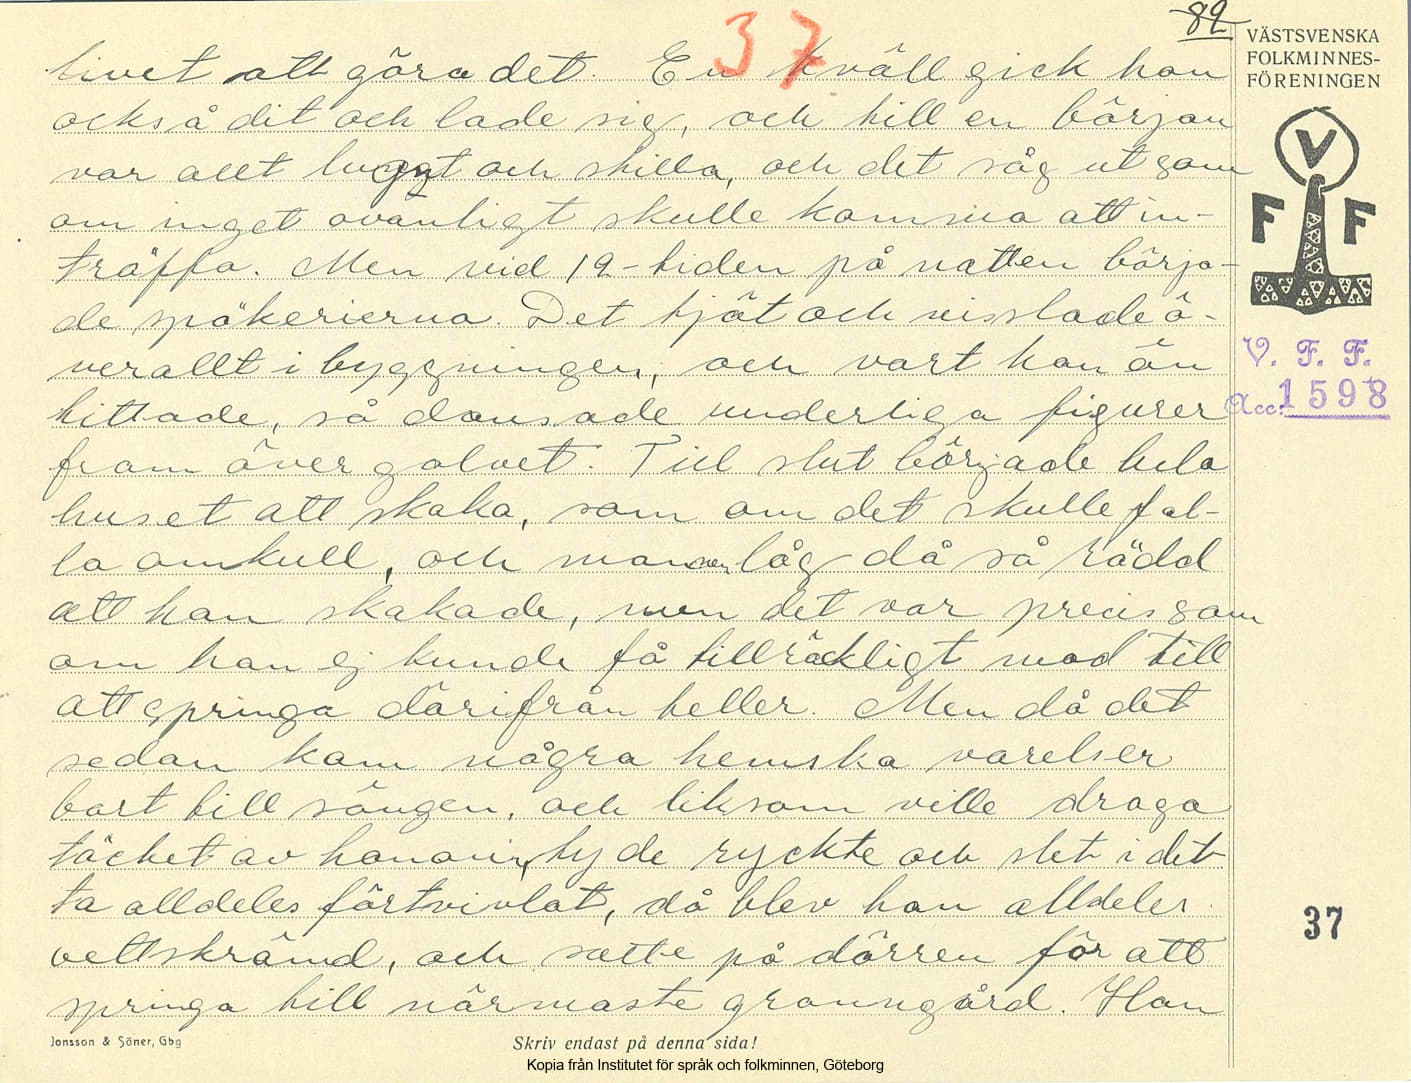 82
37
VÄSTSVENSKA
FOLKMINNES-
FÖRENINGEN
livet att göra det. En kväll gick han
också dit och lade sig, och till en början
var allt lugnt och stilla, och det såg ut som
om inget ovänligt skulle komma att in-
träffa. Men vid 12-tiden på natten börja-
de spökerierna. Det tjöt och visslade ö-
verallt i byggningen, och vart han än
tittade, så dansade underliga figurer
fram över golvet. Till slut började hela
huset att skaka, som om det skulle fal-
la omkull, och mannen låg då så rädd
att han skakade, men det var precis som
om han ej kunde få tillräckligt mod till
att springa därifrån heller. Men då det
sedan kom några hemska varelser
bort till sängen, och liksom ville draga
täcket av honom, ty de ryckte och slet i det-
ta alldeles förtvivlat, då blev han alldeles
vettskrämd, och satte på dörren för att
springa till närmaste granngård. Han
V
F F
V. F. F.
Acc. 1598
37
Jonsson & Söner, Gbg
Skriv endast på denna sida!
Kopia från Institutet för språk och folkminnen, Göteborg